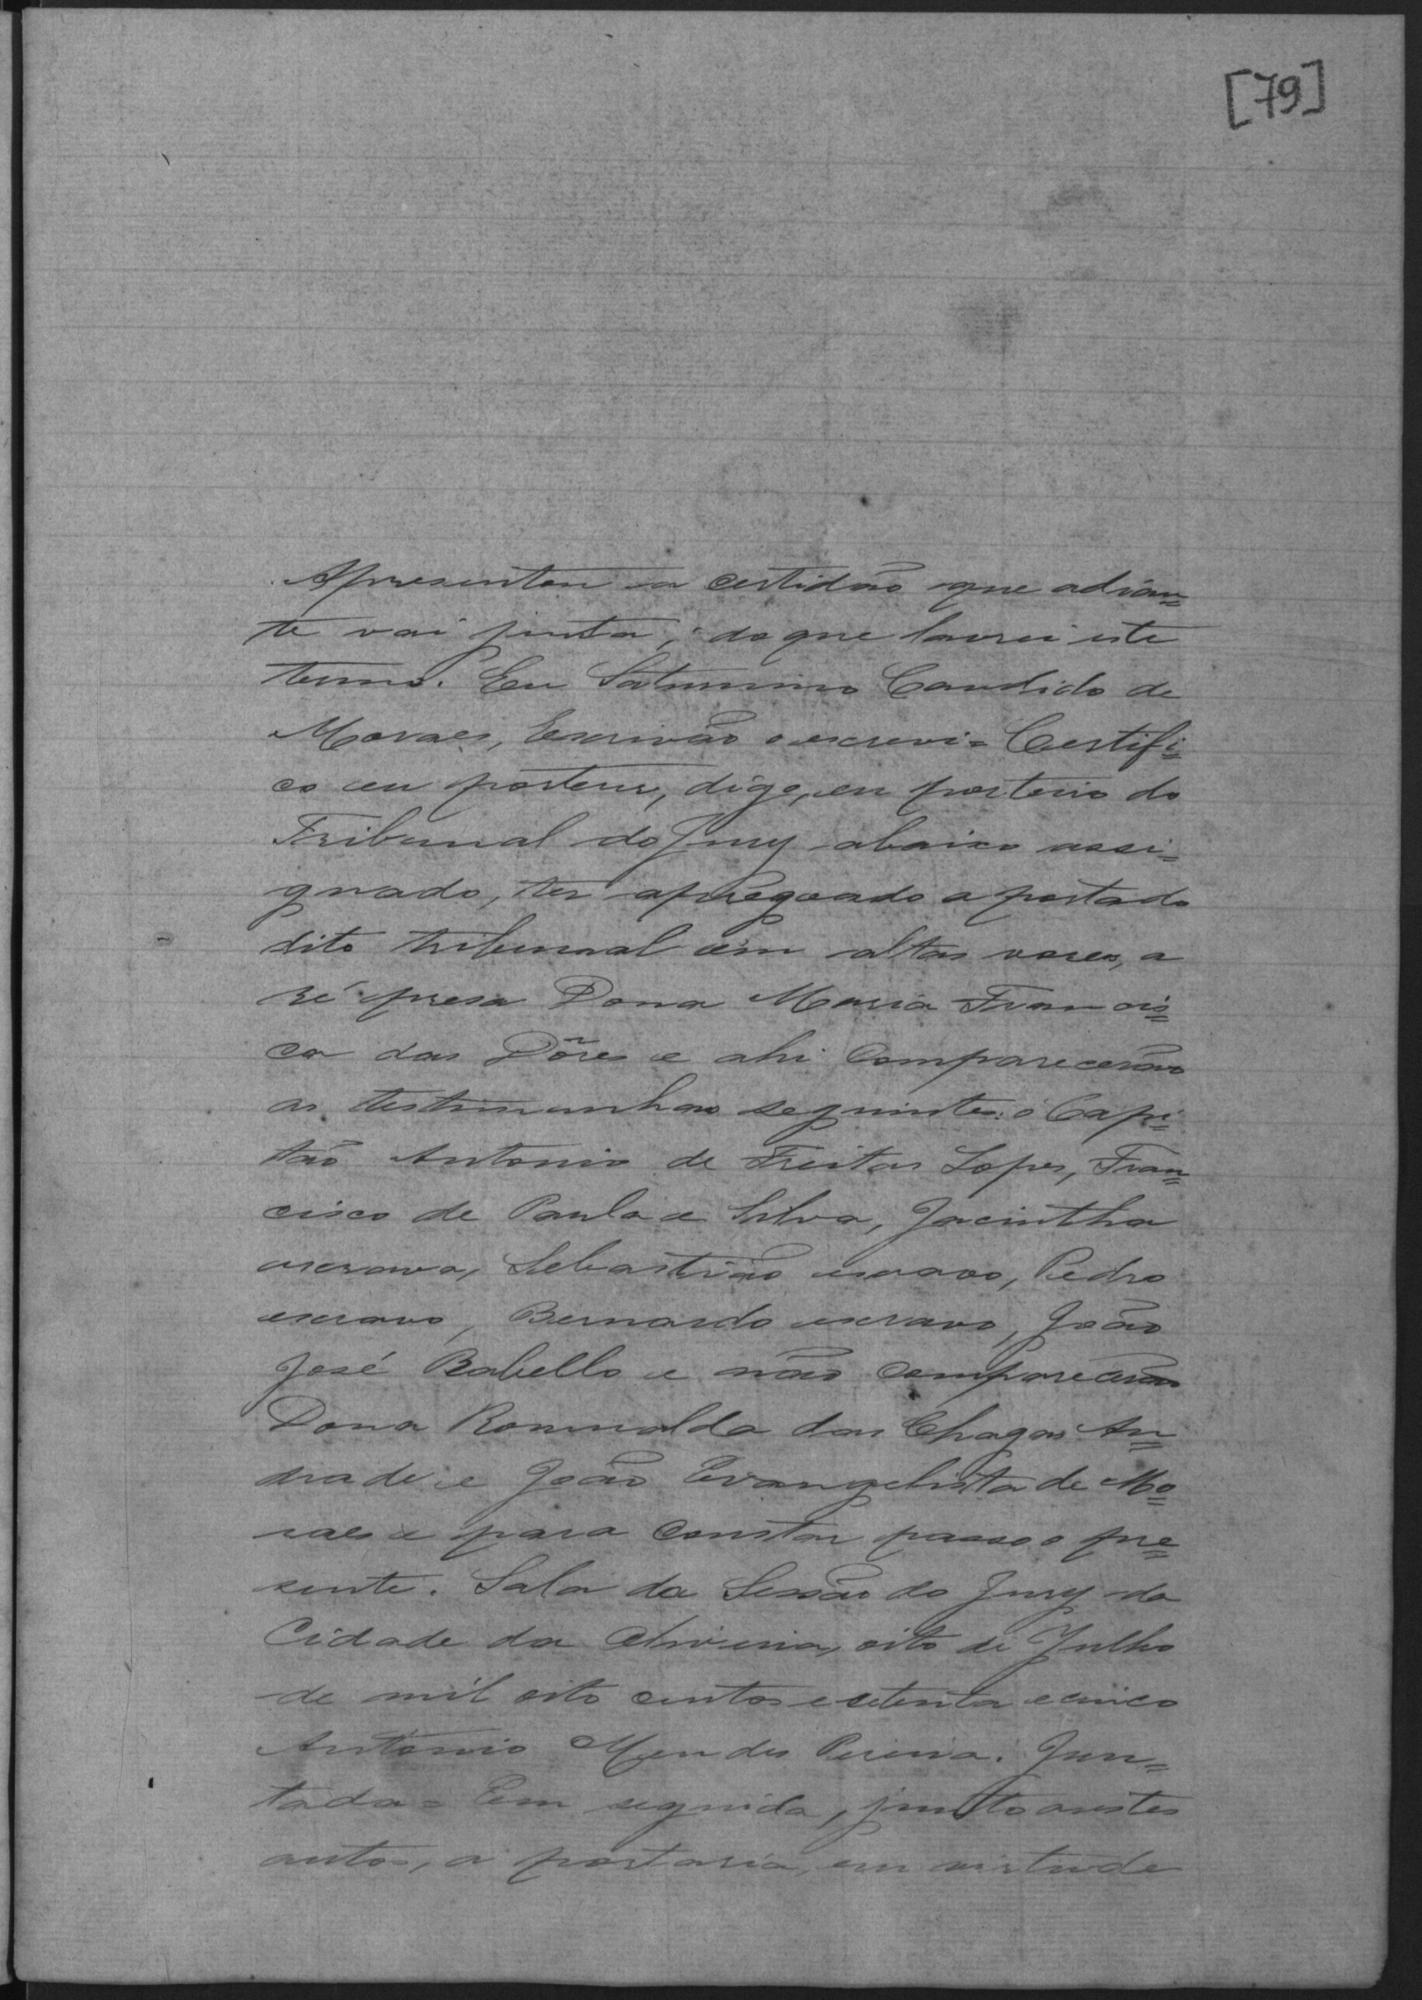 [79]
Apresentou a certidão que adian=
te vai junta, do que lavrei este
termo. Eu Saturnino Candido de
Moraes, Escrivão o escrevi = Certifi=
co eu porteru, digo, eu porteiro do
Tribunal do Jury abaixo assi=
gnado, ter apregoado a porta do
dito tribunal em altas vozes, a
ré presa Dona Maria Francis=
ca das Dôres e ahi comparecerão
as testimunhas seguintes: o Capi=
tão Antonio de Freitas Lopes, Fran=
cisco de Paula e Silva, Jacintha
escrava, Sebastião escravo, Pedro
escravo, Bernardo escravo, João
José Rabello e não comparecerão
Dona Romualda das Chagas An=
drade e João Evangelista de Mo=
raes e para constar passo o pre=
sente. Sala da Sessão do Jury da
Cidade da Oliveira, oito de Julho
de mil oito centos e setenta e cinco
Antonio Mendes Pereira. Jun=
tada = Em seguida, junto a estes
autos, a portaria, em virtude